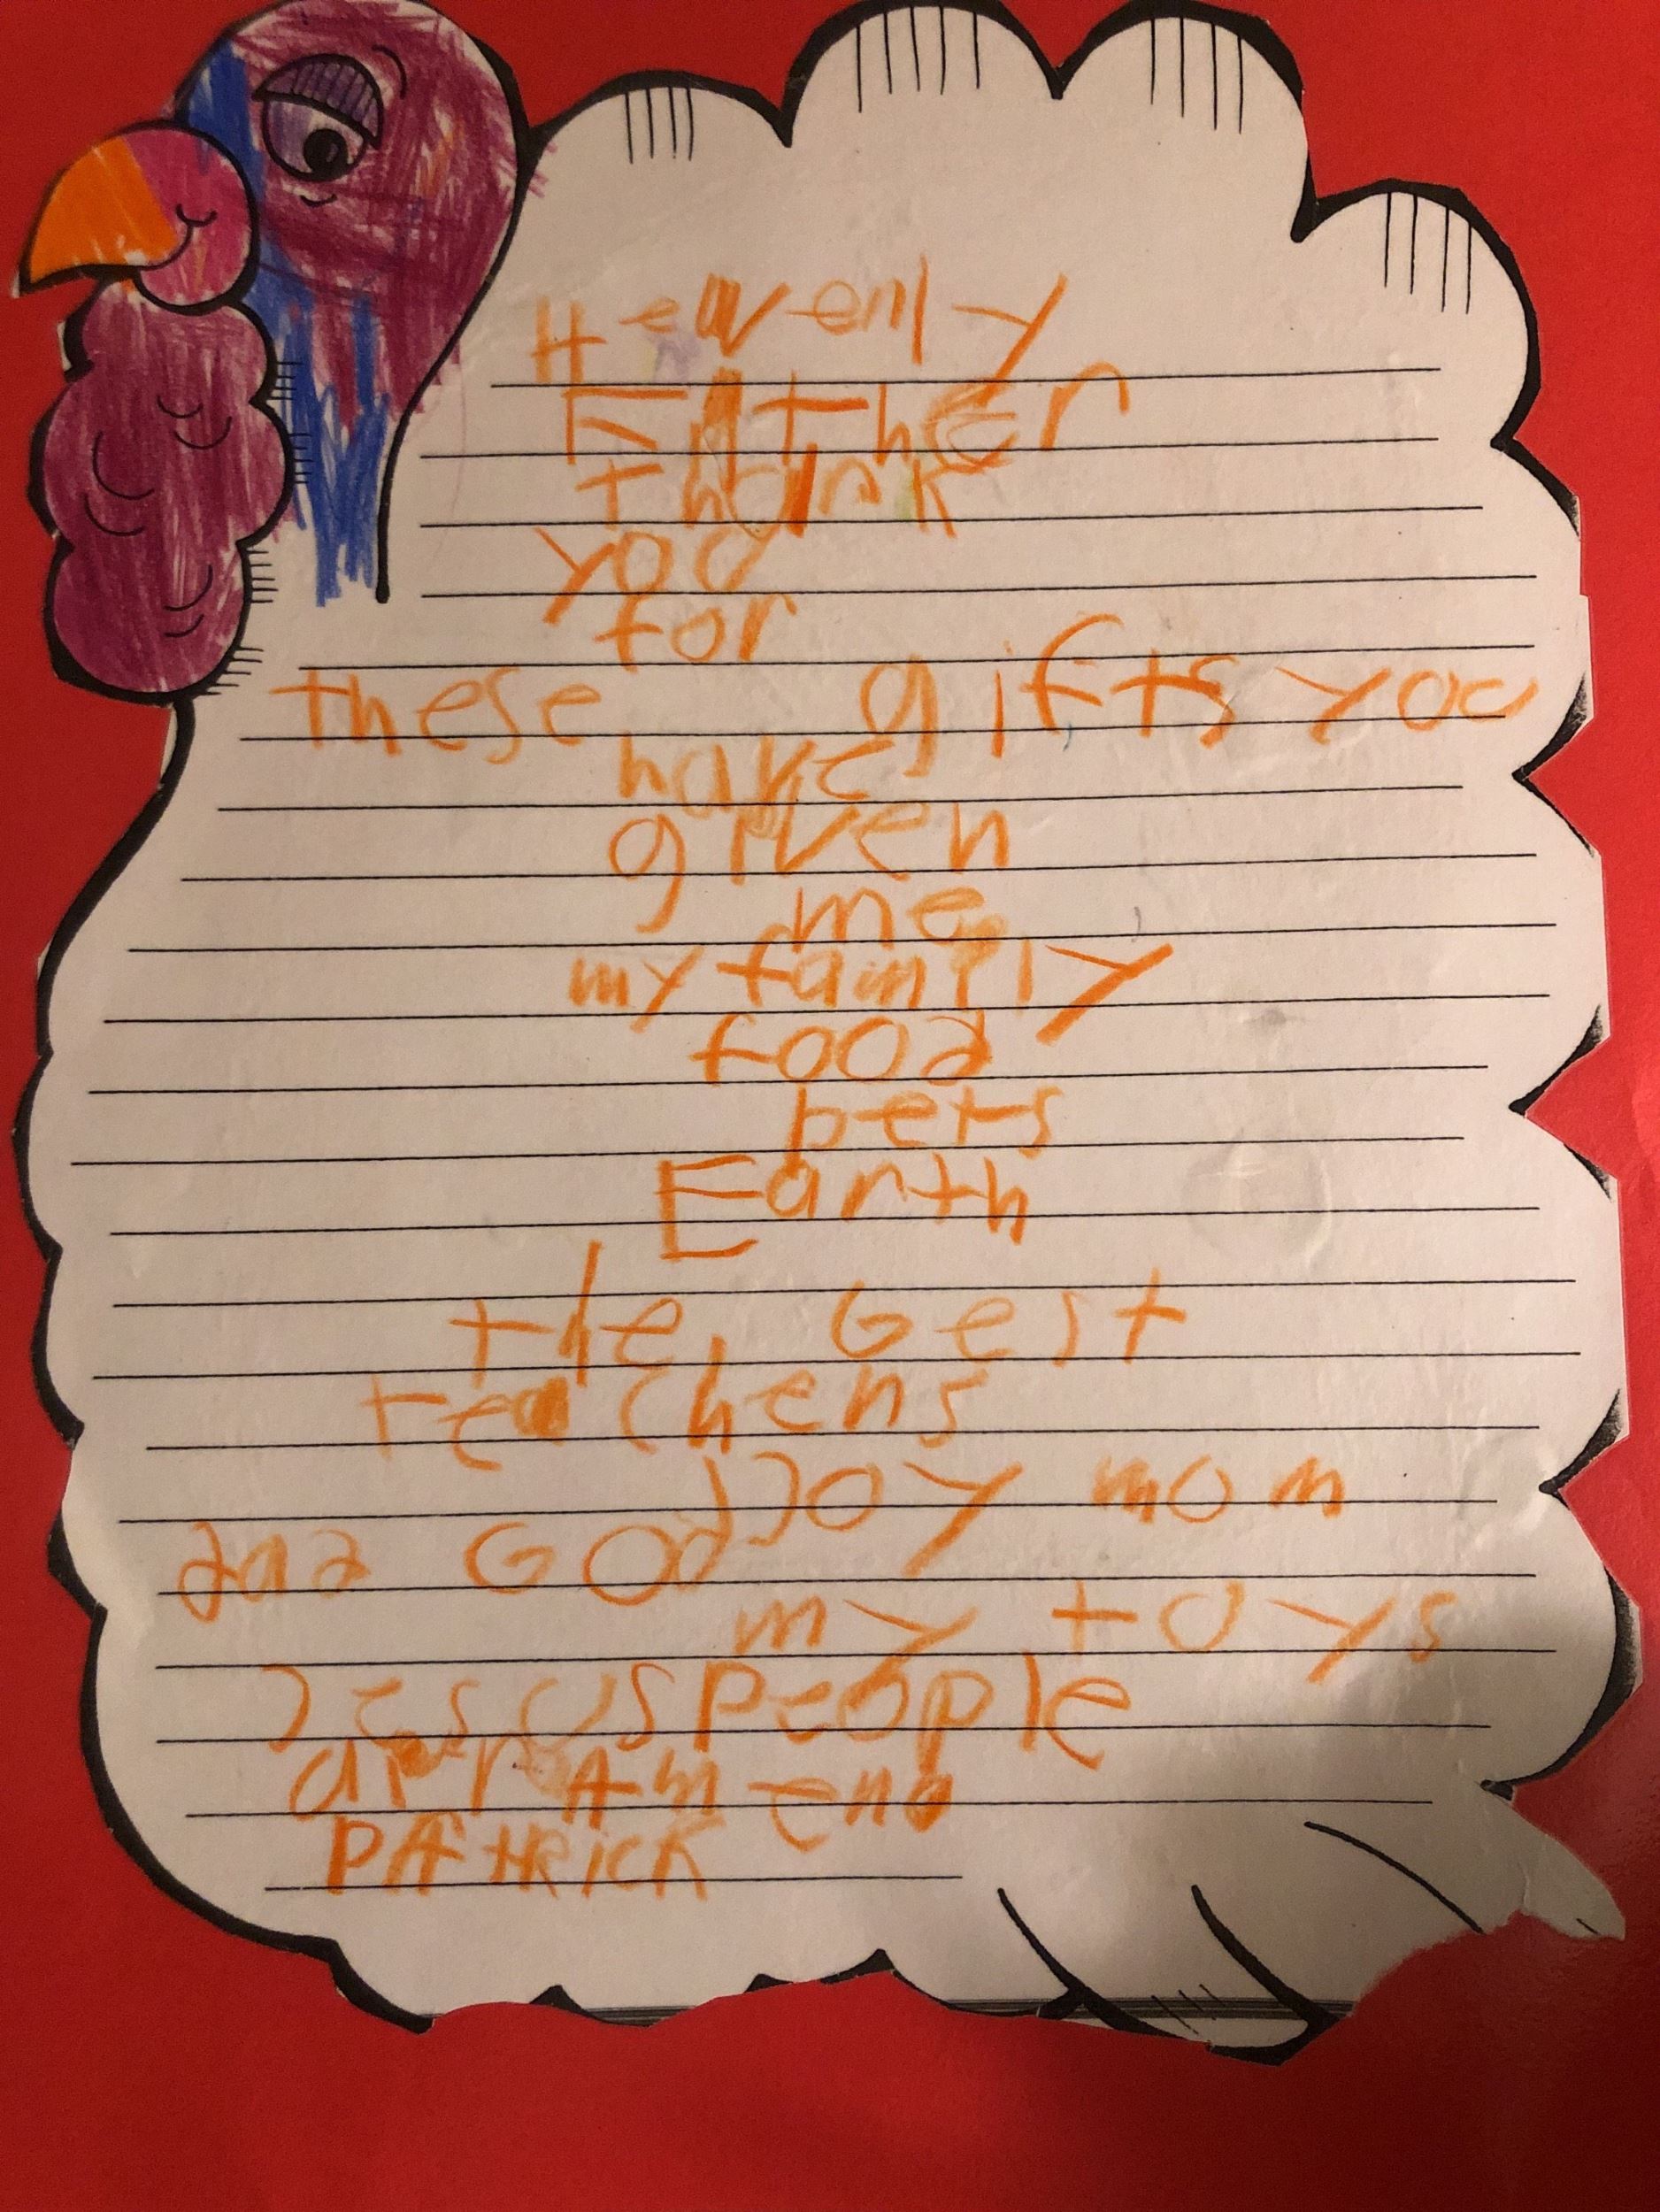 Hevenly
Father
thank
you
for
these gifts you
have
given
me
my family
food
pets
Earth
the best
teachers
joy mom
dad God
my toys
Jesus people
art Amend
PAtRicK